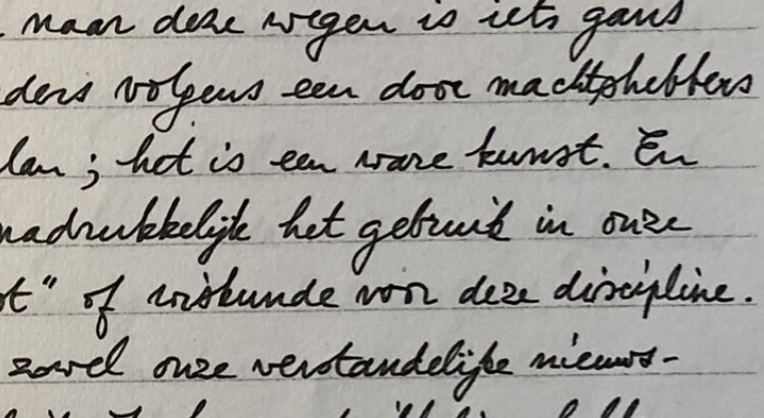 . maar deze wegen is iets gans
ders volgens een door machtshebbers
lan ; het is een ware kunst. En
nadrukkelijk het gebruik in onze
ot" of wiskunde voor deze discipline.
zowel onze verstandelijke nieuws-